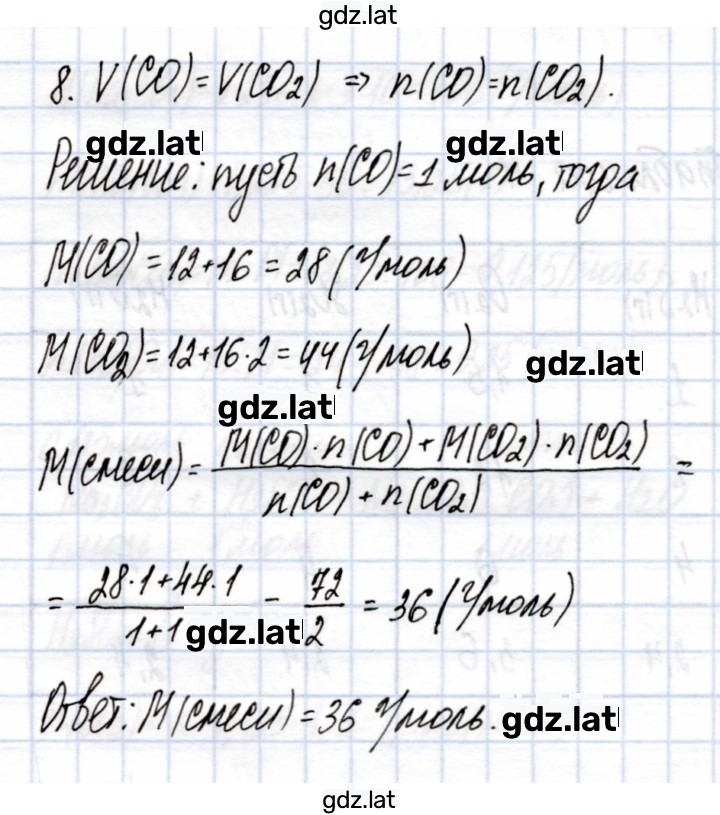 gdz.lat
8. V(CO)=V(CO₂) ⇒ n(CO)=n(CO₂).
gdz.lat gdz.lat
Решение: пусть n(CO)=1 моль, тогда
M(CO)=12+16=28(г/моль)
M(CO₂)=12+16·2=44(г/моль)
gdz.lat
gdz.lat
M(смеси)= M(CO)·n(CO)+M(CO₂)·n(CO₂) =
n(CO)+n(CO₂)
= 28·1+44·1 = 72 = 36(г/моль)
1+1 2
gdz.lat
Ответ: M(смеси)=36 г/моль.
gdz.lat
gdz.lat